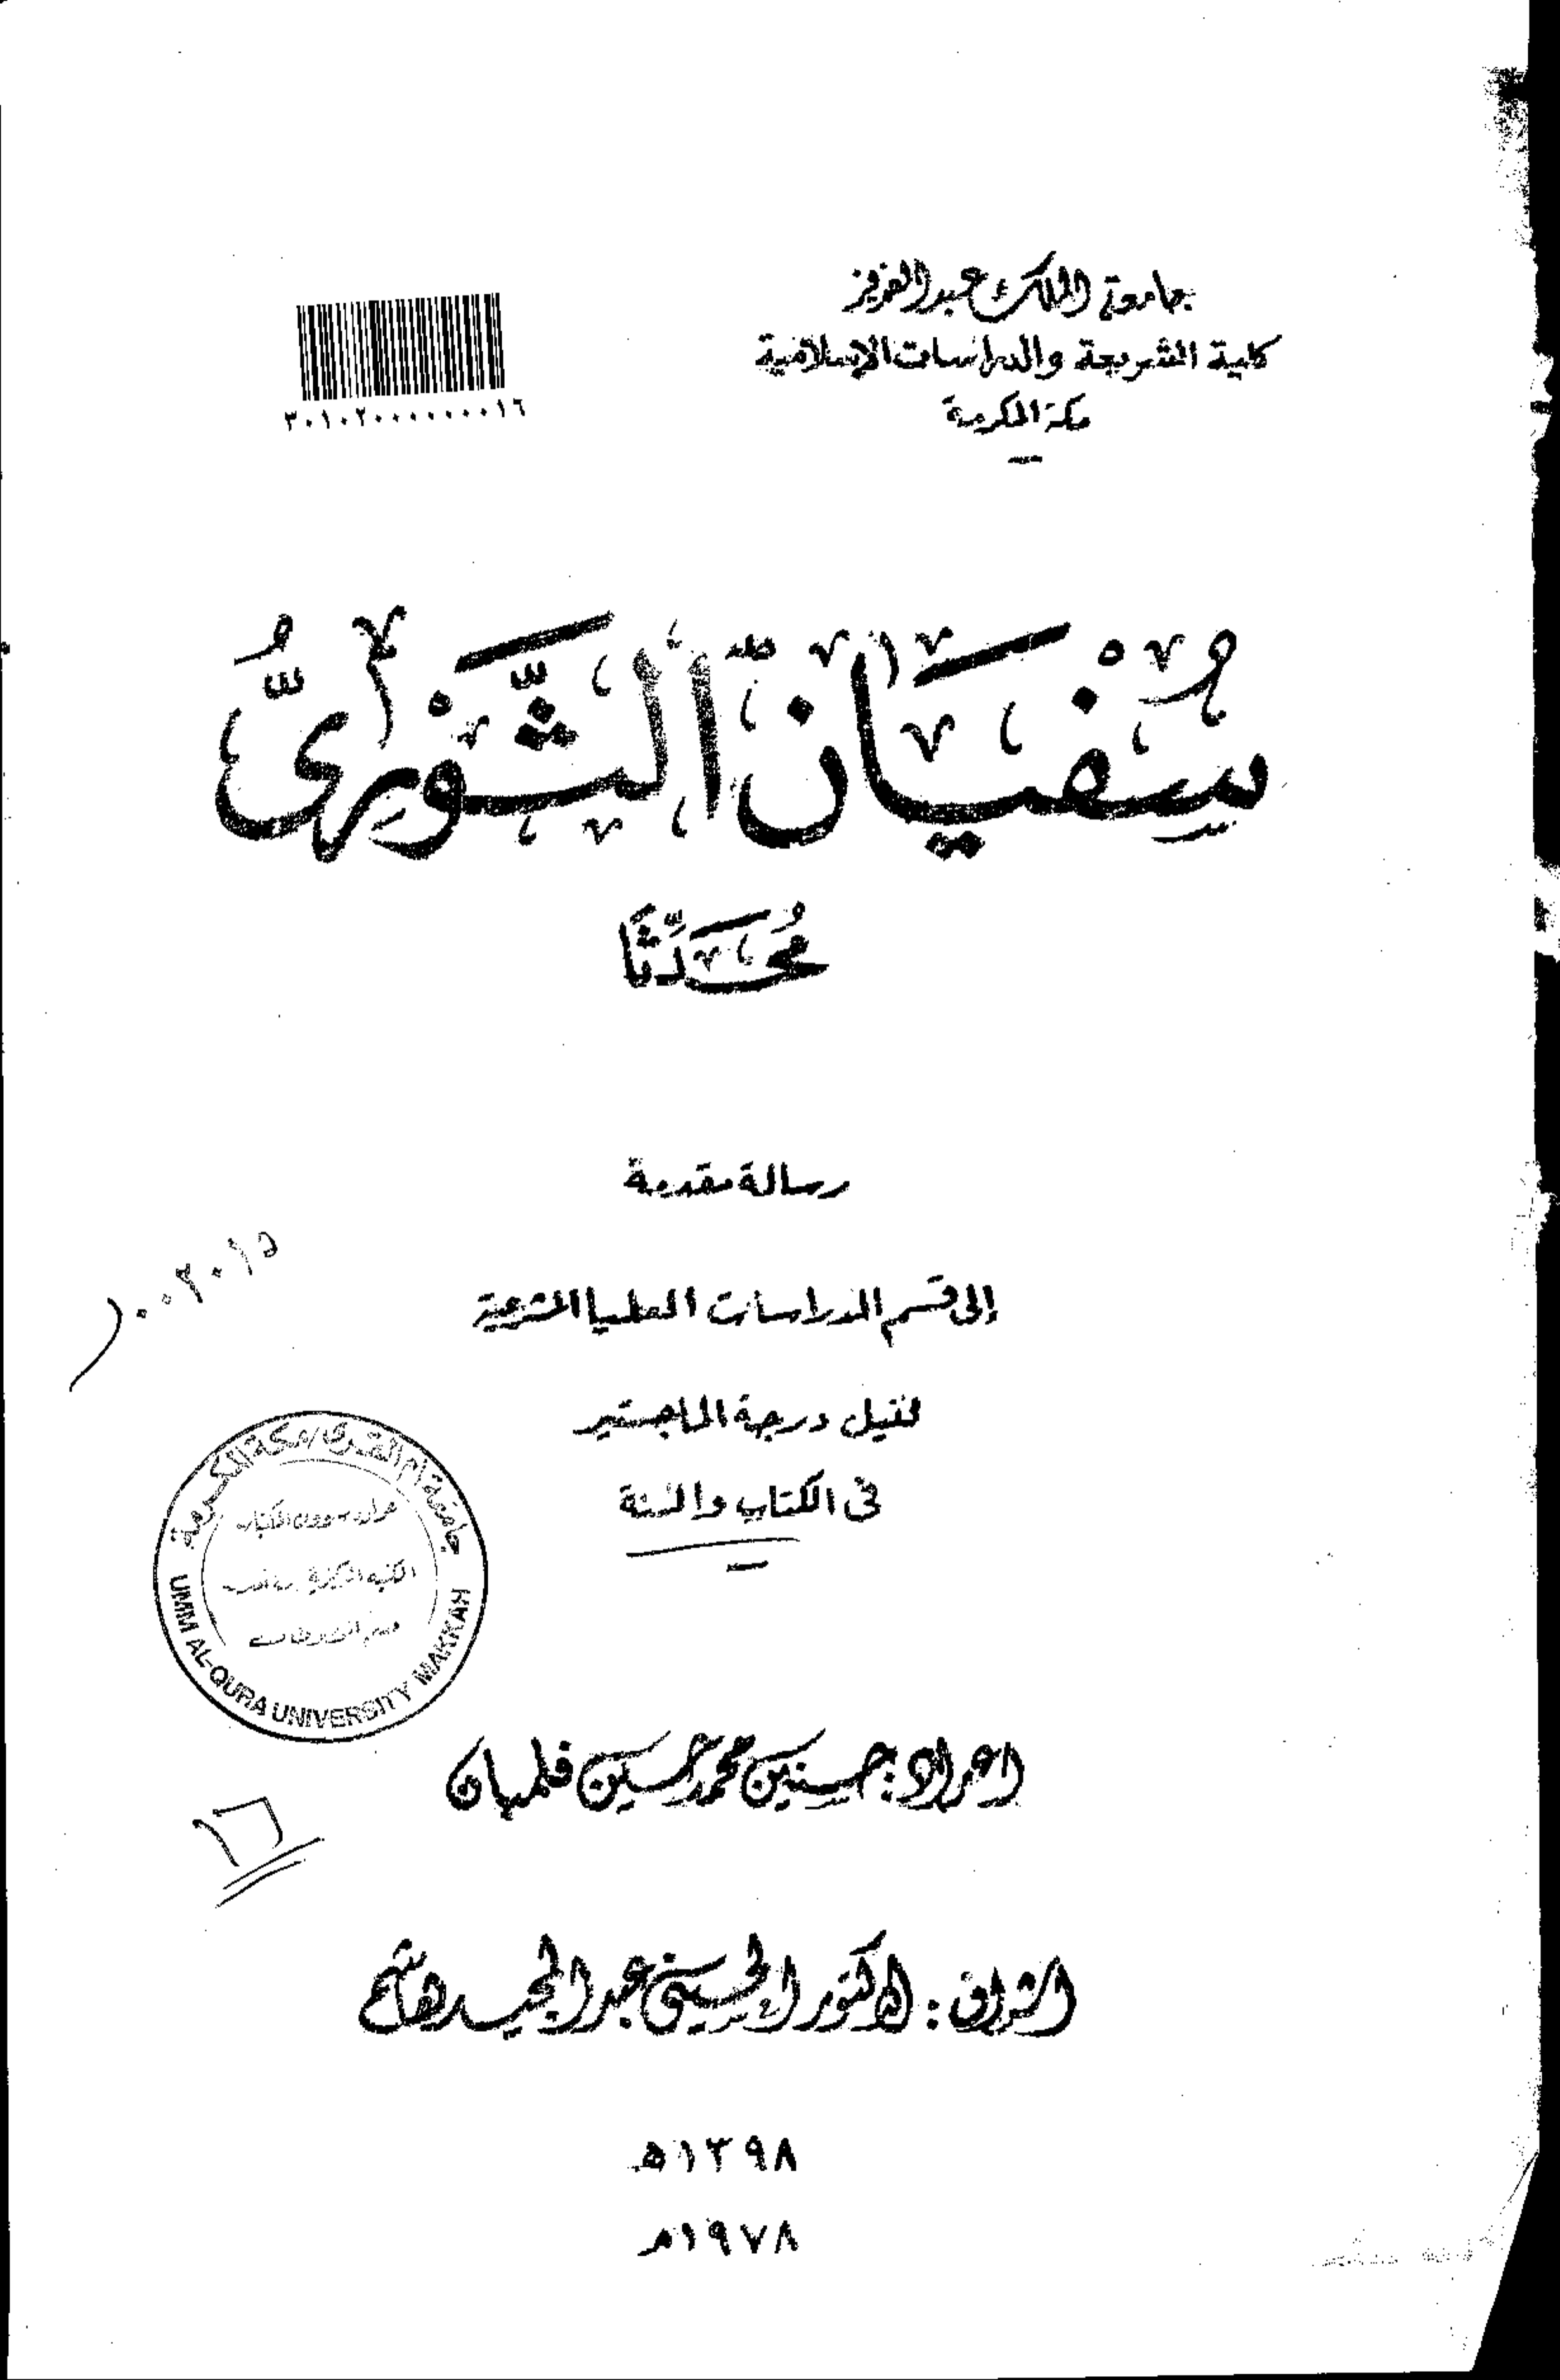 جامعة الملك عبد العزيز
كلية الشريعة والدراسات الإسلامية
مكة المكرمة
٣٠١٠٢٠٠٠٠٠٠٠٠١٦
سُفْيَانُ الثَّوْرِيُّ
مُحَدِّثًا
رسالة مقدمة
إلى قسم الدراسات العليا الشرعية
لنيل درجة الماجستير
فى الكتاب والسنة
جامعة أم القرى / مكة المكرمة
UMM AL-QURA UNIVERSITY MAKKAH
اعداد : حسنين محمد حسين فلمبان
١٦
اشراف : الدكتور الحسينى عبد المجيد هاشم
١٣٩٨ه
١٩٧٨م